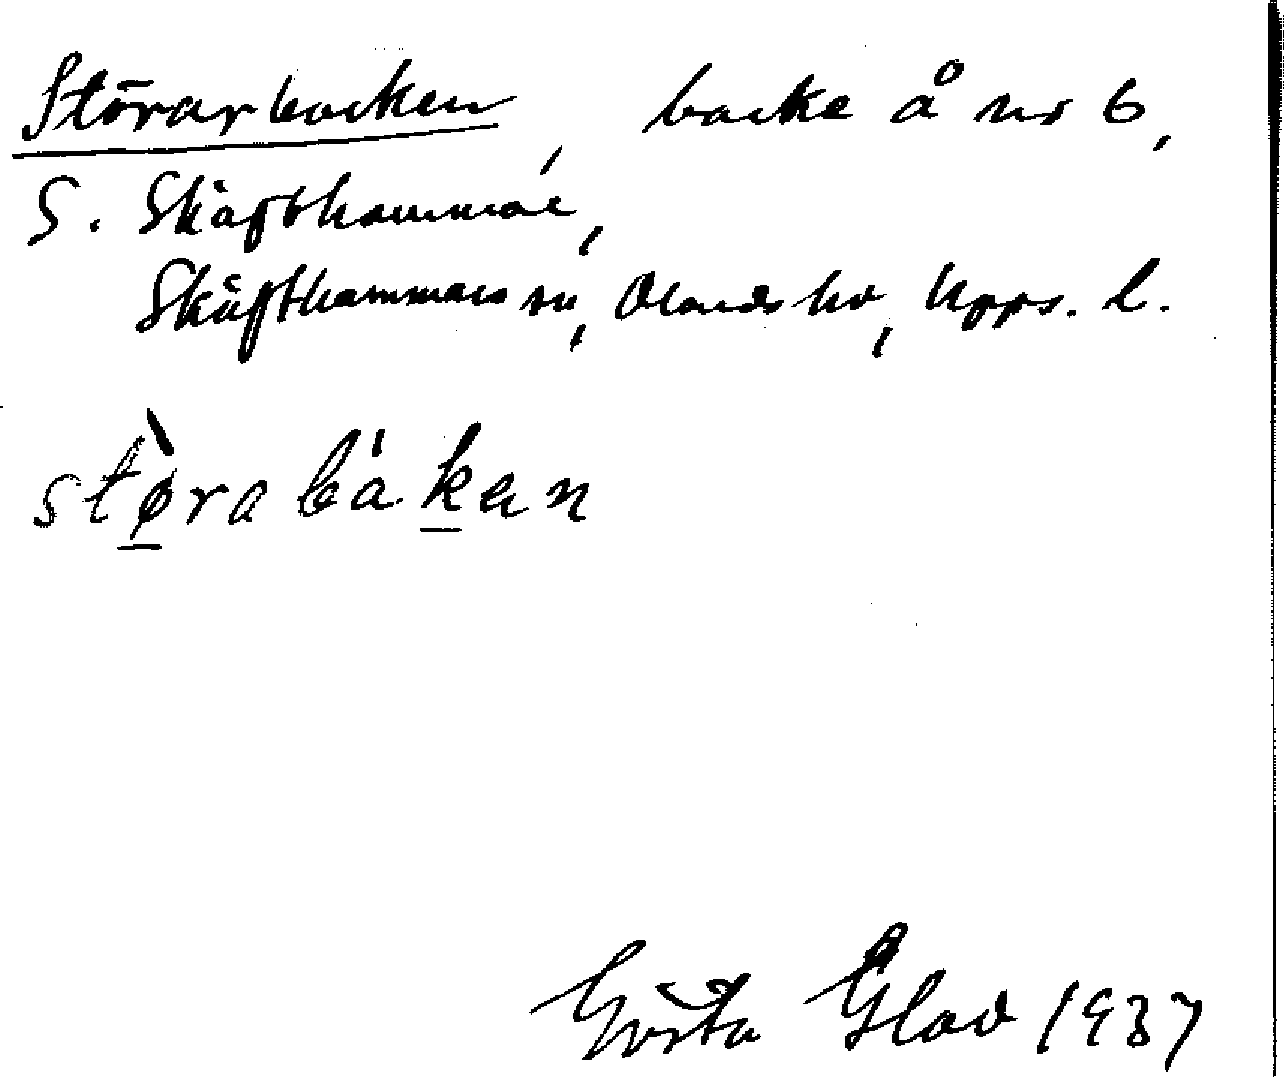 Störarbacken, backe å nr 6,
S. Skäfthammar,
Skäfthammars sn, Olands hd, Upps. l.
stø̀rabákɐn
Gösta Glad 1937